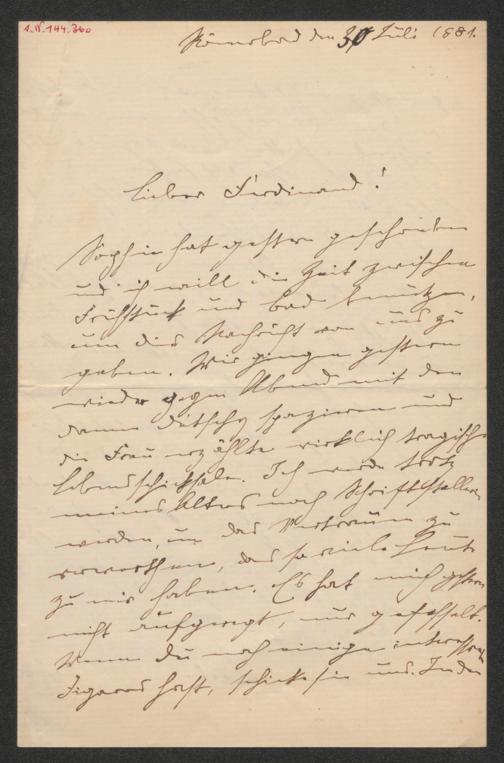 1.N.144.360
den 30 Juli 1881.
Lieber Ferdinand!
Sophie hat gestern geschrieben
und ich will die Zeit zwischen
Frühstück und Bad benutzen,
um dir Nachricht von uns zu
geben. Wir gingen gestern
wieder gegen Abend mit den
spazieren und
die Frau erzählte wirklich tragische
Lebensschicksale. Ich werde trotz
meines Alters noch Schriftsteller
werden, um das Vertrauen zu
das so viele Leute
zu mir haben. Es hat mich gestern
nicht aufgeregt, nur gefesselt.
Wenn du noch einige interessante
Figaros hast, schicke sie uns. In der